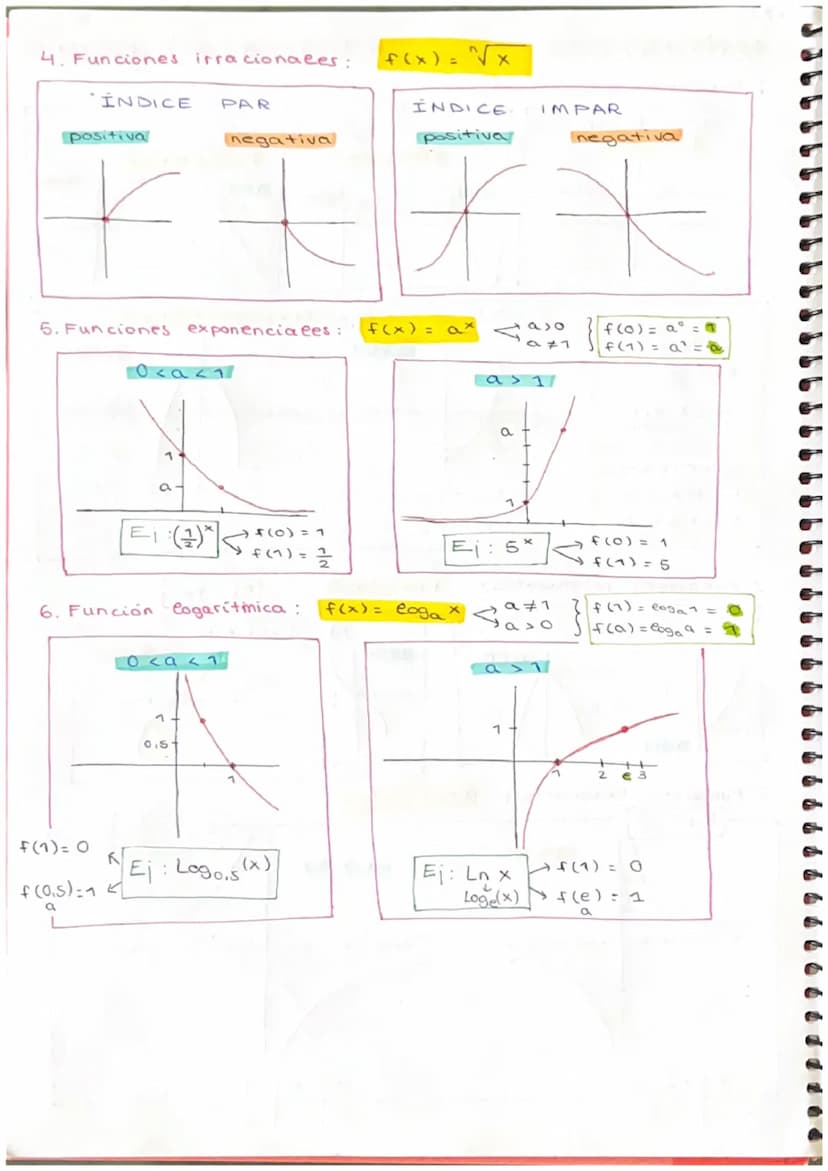 4. Funciones irracionales: f(x) = ⁿ√x
ÍNDICE PAR
positiva negativa
ÍNDICE IMPAR
positiva negativa
5. Funciones exponenciales: f(x) = aˣ a>0 a≠1 f(0) = a⁰ = 1
f(1) = a¹ = a
0 < a < 1
1
a
Ej: (1/2)ˣ f(0) = 1
f(1) = 1/2
a > 1
a
1
Ej: 5ˣ f(0) = 1
f(1) = 5
6. Función logarítmica: f(x) = logₐ x a≠1 a>0 f(1) = logₐ 1 = 0
f(a) = logₐ a = 1
0 < a < 1
1
0,5
1
f(1) = 0
f(0,5) = 1
a
Ej: Log₀,₅ (x)
a > 1
1
1 2 e 3
Ej: Ln x f(1) = 0
Logₑ(x) f(e) = 1
a